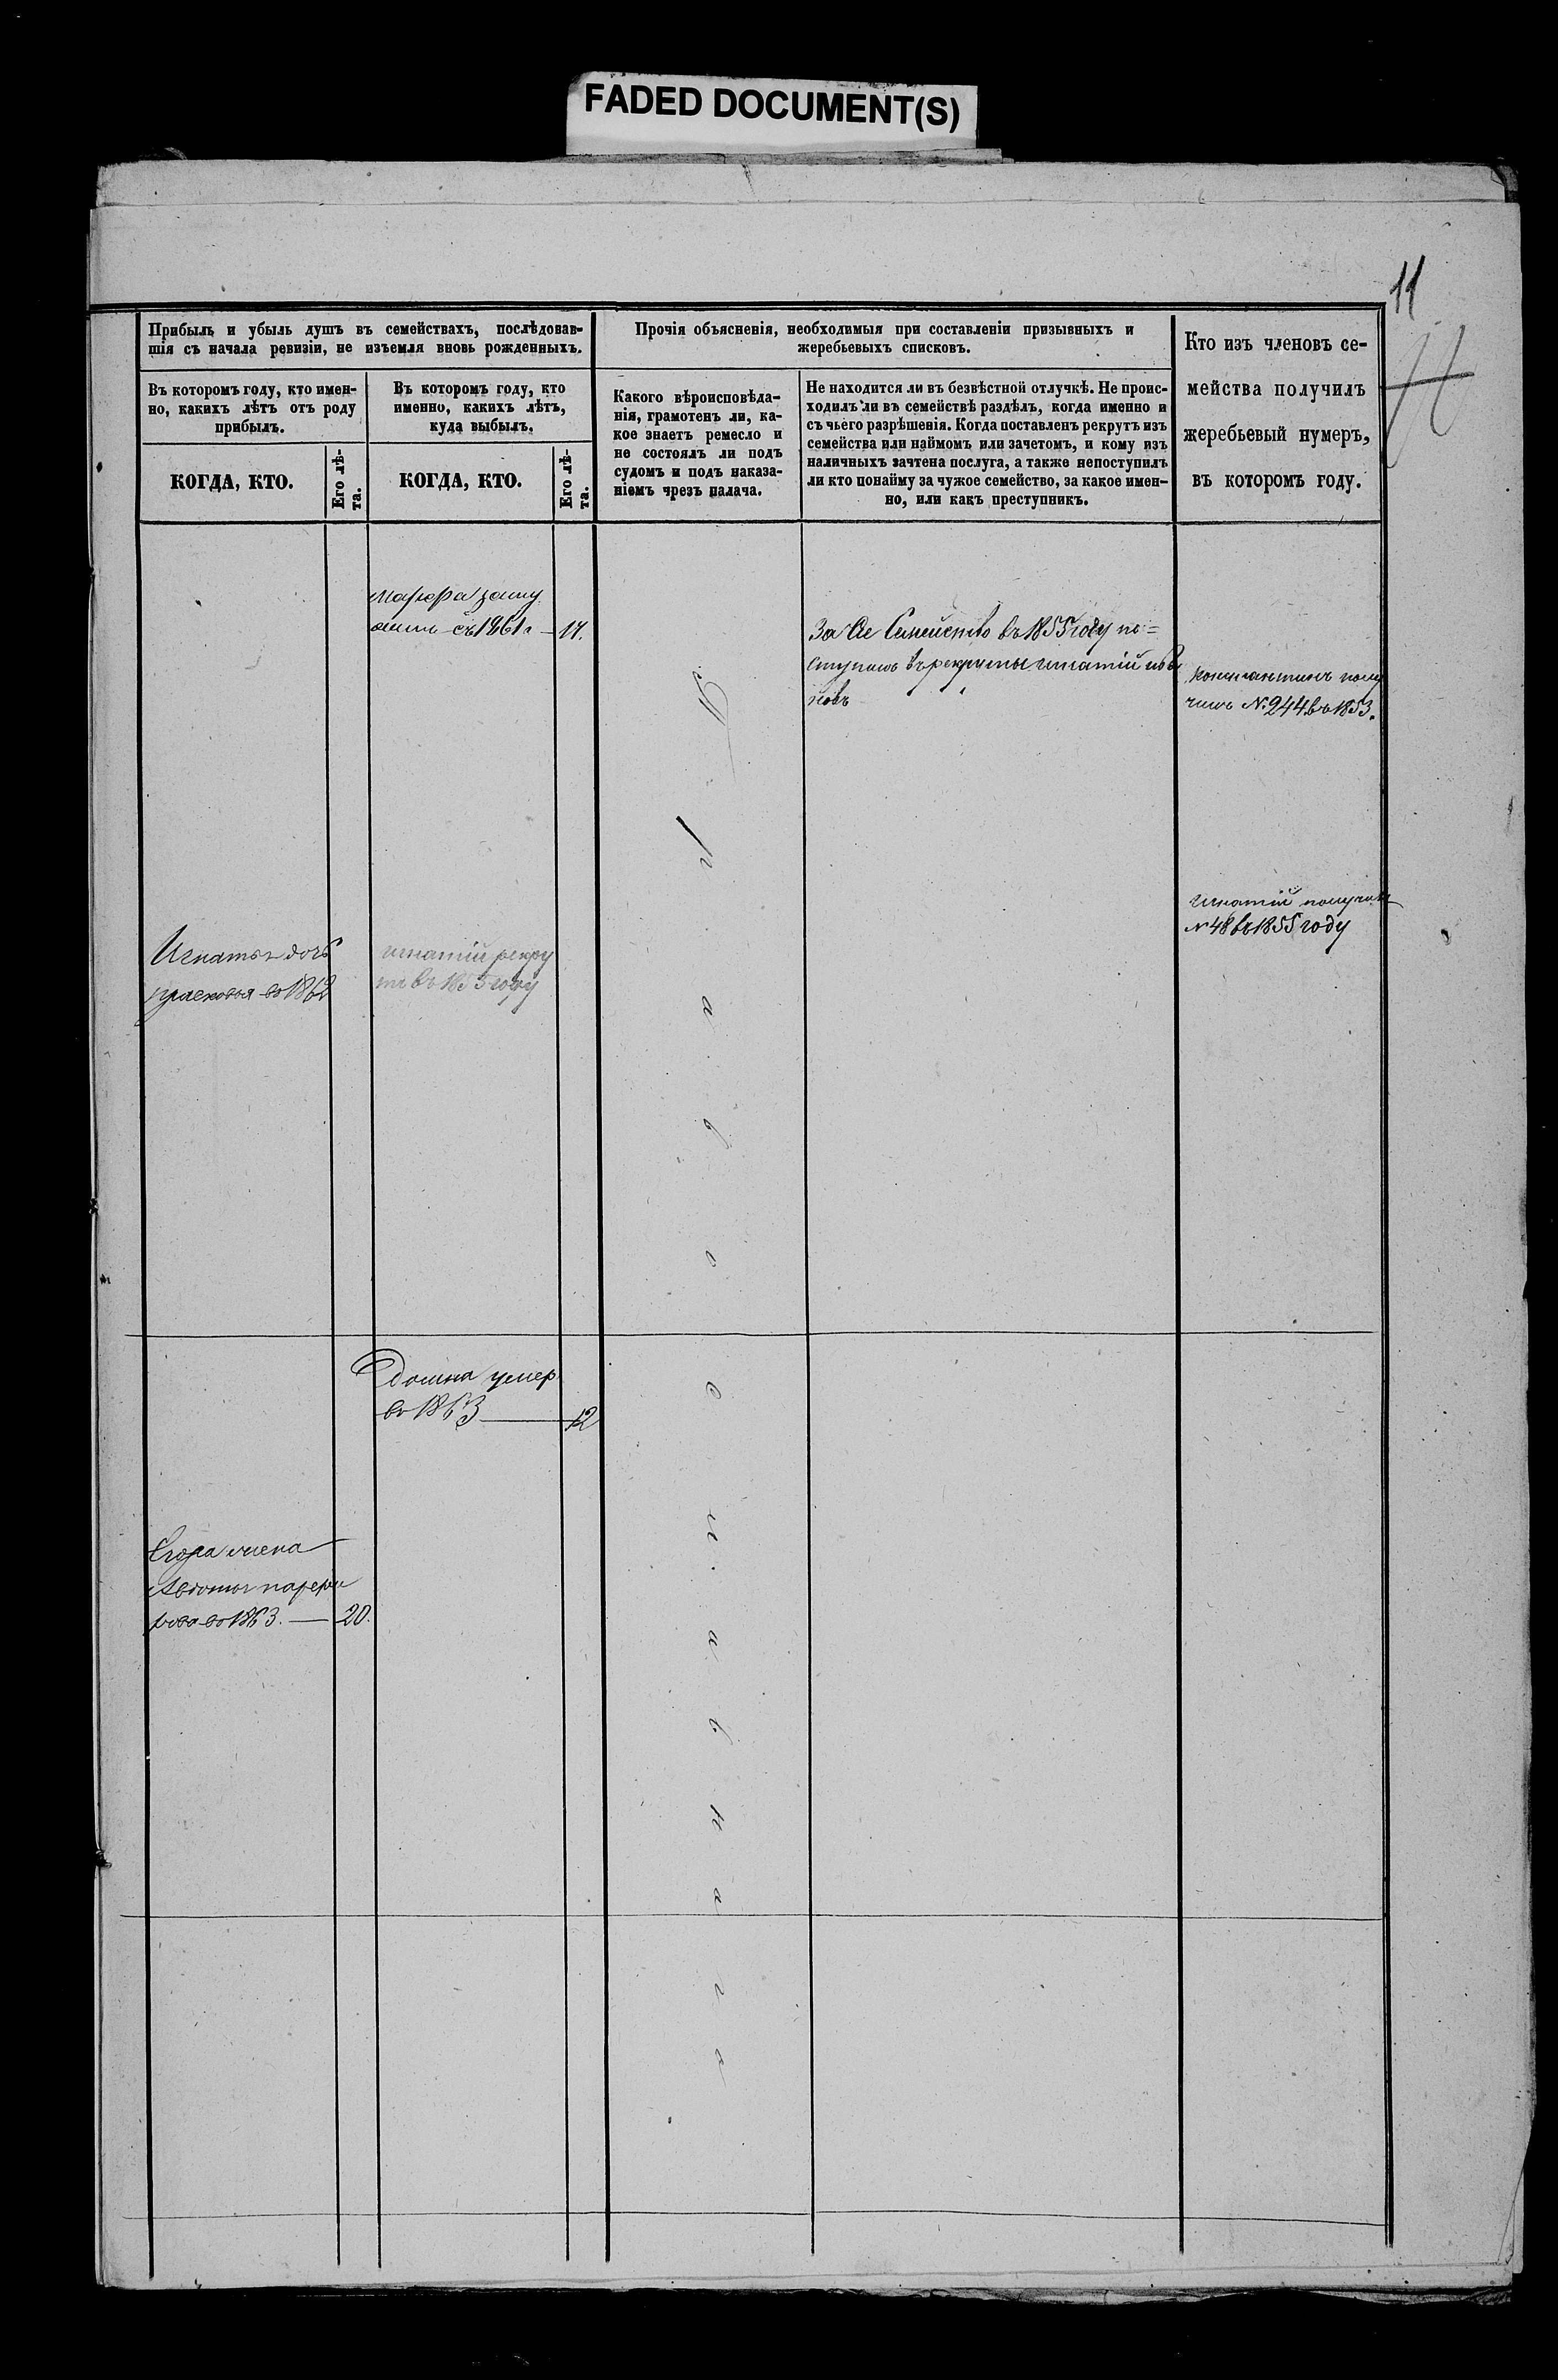 FADED DOCUMENT(S)
11
Прибыль и убыль душъ въ семействахъ, послѣдовав-
шія съ начала ревизіи, не изъемля вновь рожденныхъ.
Въ которомъ году, кто имен-
но, какихъ лѣтъ отъ роду
прибылъ.
Въ которомъ году, кто
именно, какихъ лѣтъ,
куда выбылъ.
КОГДА, КТО.
Его лѣ-
та.
КОГДА, КТО.
Его лѣ-
та.
Прочія объясненія, необходимыя при составленіи призывныхъ и
жеребьевыхъ списковъ.
Какого вѣроисповѣда-
нія, грамотенъ ли, ка-
кое знаетъ ремесло и
не состоялъ ли подъ
судомъ и подъ наказа-
ніемъ чрезъ палача.
Не находится ли въ безвѣстной отлучкѣ. Не проис-
ходилъ ли въ семействѣ раздѣлъ, когда именно и
съ чьего разрѣшенія. Когда поставленъ рекрутъ изъ
семейства или наймомъ или зачетомъ, и кому изъ
наличныхъ зачтена послуга, а также непоступилъ
ли кто понайму за чужое семейство, за какое имен-
но, или какъ преступникъ.
Кто изъ членовъ се-
мейства получилъ
жеребьевый нумеръ,
въ которомъ году.
Марфа заму
съ 1861 г 17.
За Сие Семейство въ 1855 году по=
ступилъ въ рекруты игнатій ива
новъ
константинъ полу
чилъ №244 въ 1853.
Игнатій получилъ
№48 въ 1855 году
Игнатья дочь
прасковья въ 1862
игнатий рекру
тъ въ 1855 году
Домна умер
въ 1863 12
Егора жена
Авдотья
въ 1863. 20.